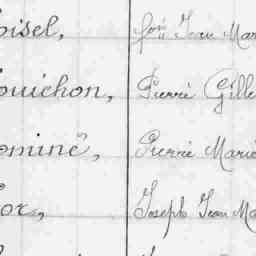 oisel, fois Jean Mar
ouichon, Pierre Gille
eminé, Pierre Marie
or, Joseph Jean Ma